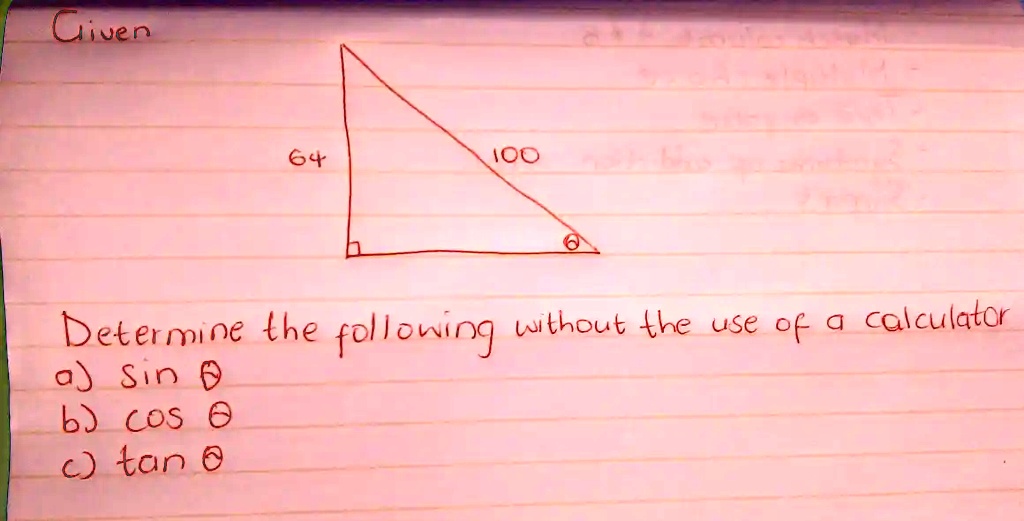 Given
64
100
θ
Determine the following without the use of a calculator
a) sin θ
b) cos θ
c) tan θ